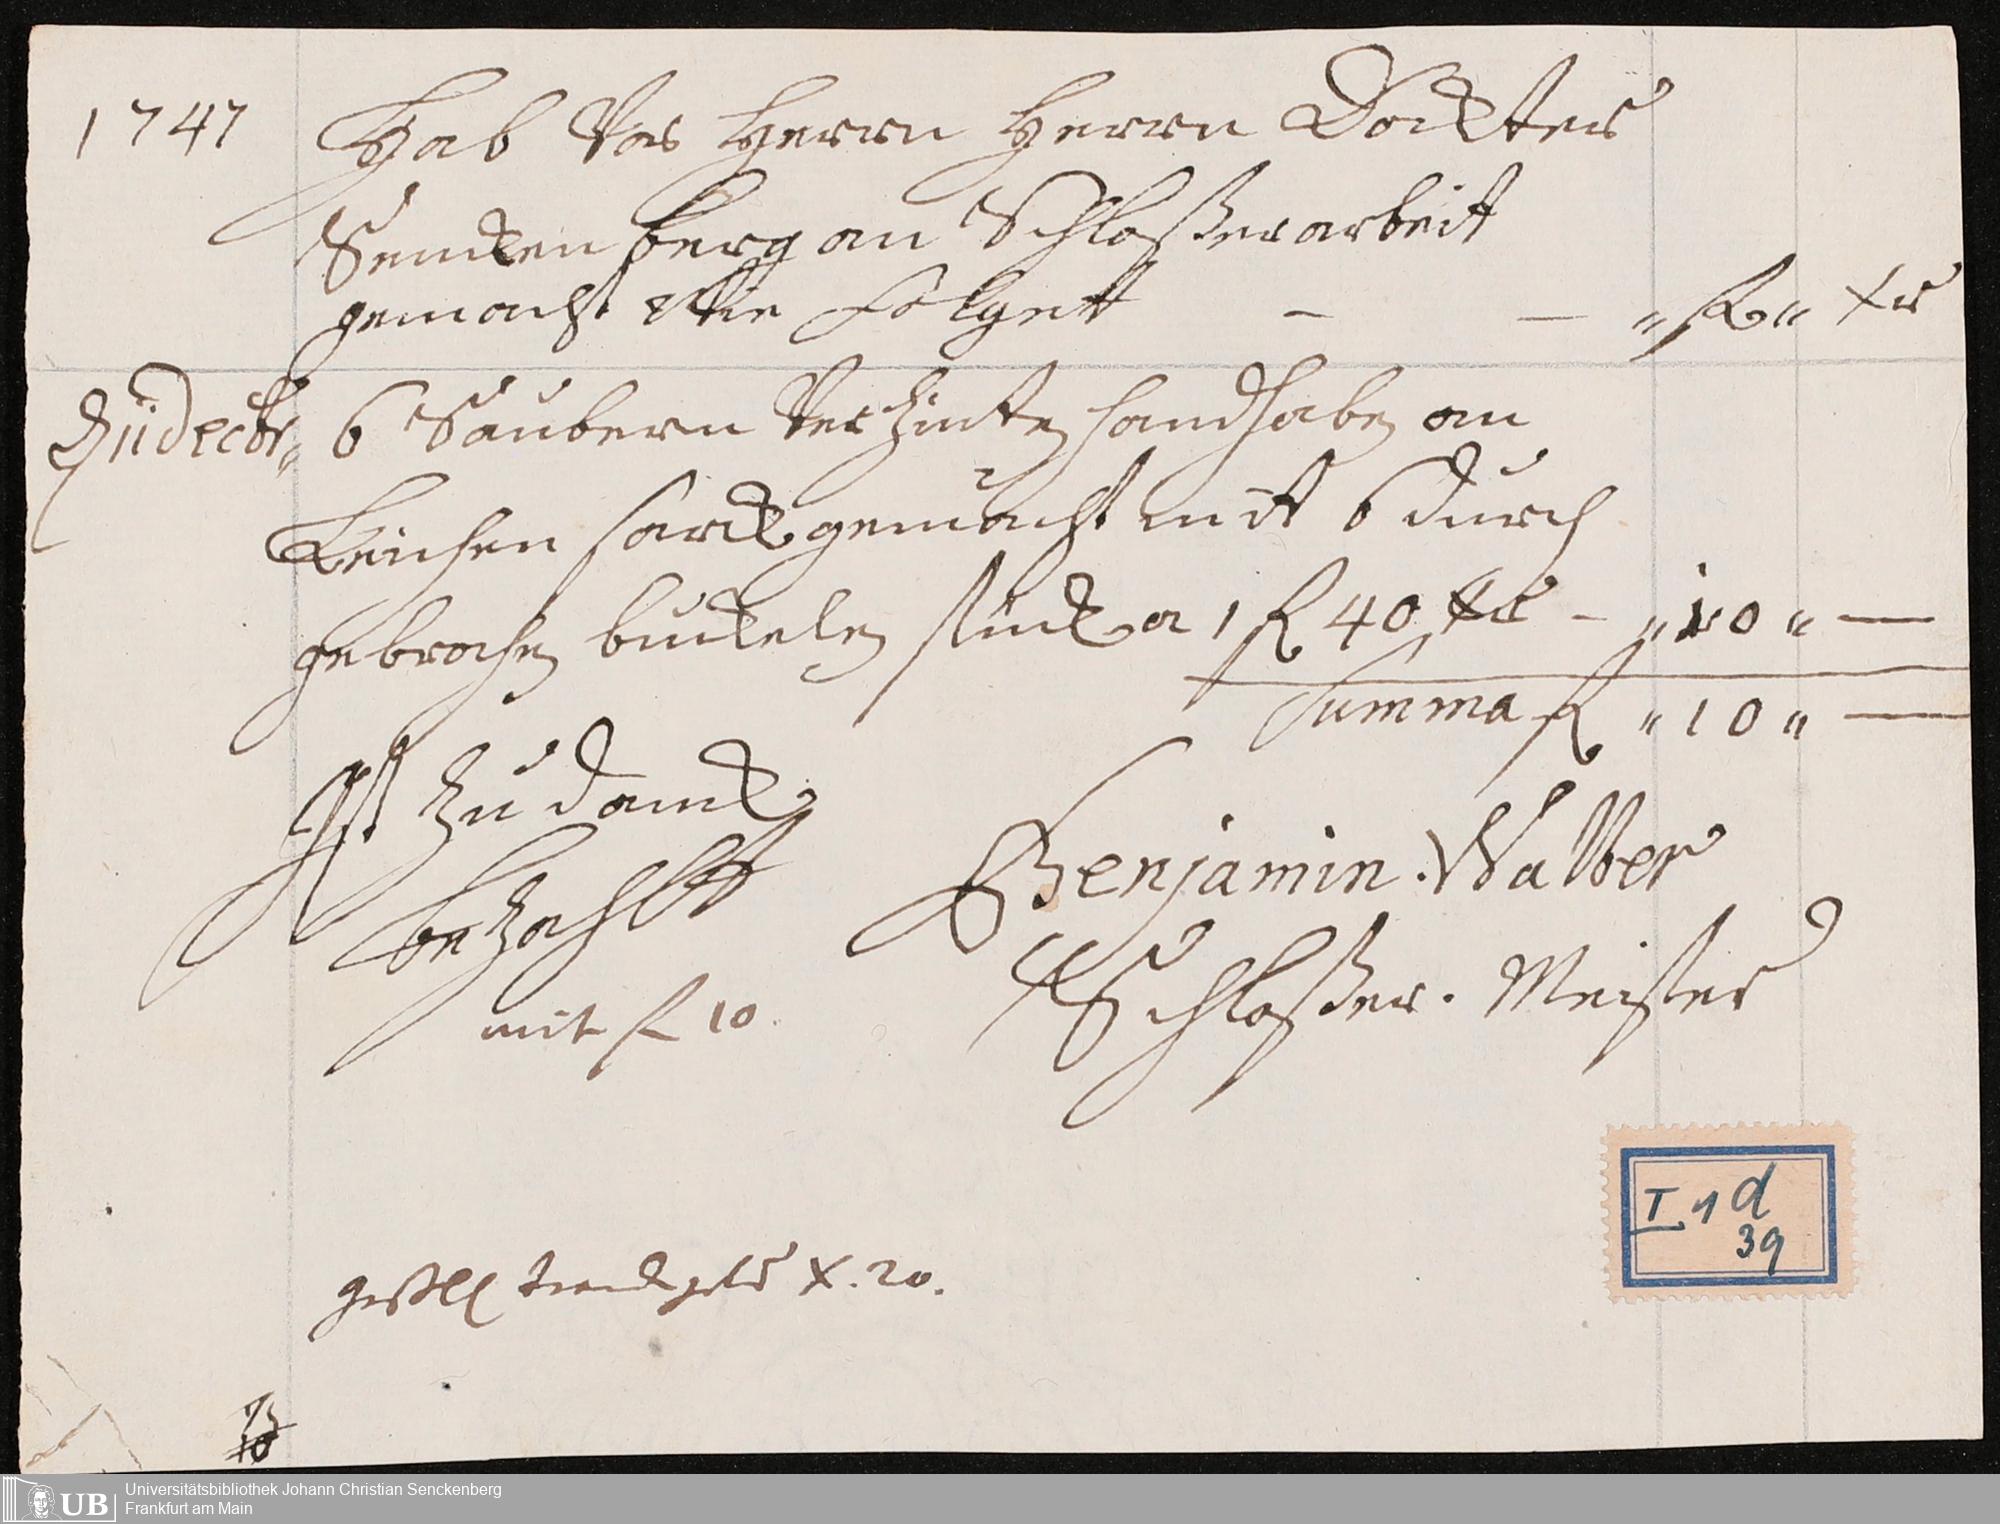 1747 Hab Vor Herrn Herrn Dockter
Senckenberg an Schloßerarbeit
gemacht Wie Folgett — — „ fl „ xr
6 Saubern Verzinten handhaben an
Leichen sarck gemacht mit 6 durch
gebrochen buckelen stück a 1 fl 40 xr — „ 10 „ —
Summa fl „ 10 „ —
Ist zu danck
bezahltt
mit fl 10
Benjamin Walber
Schloßer Meister
I 1 d
39
trinckgeld X. 20.
UB Universitätsbibliothek Johann Christian Senckenberg
Frankfurt am Main